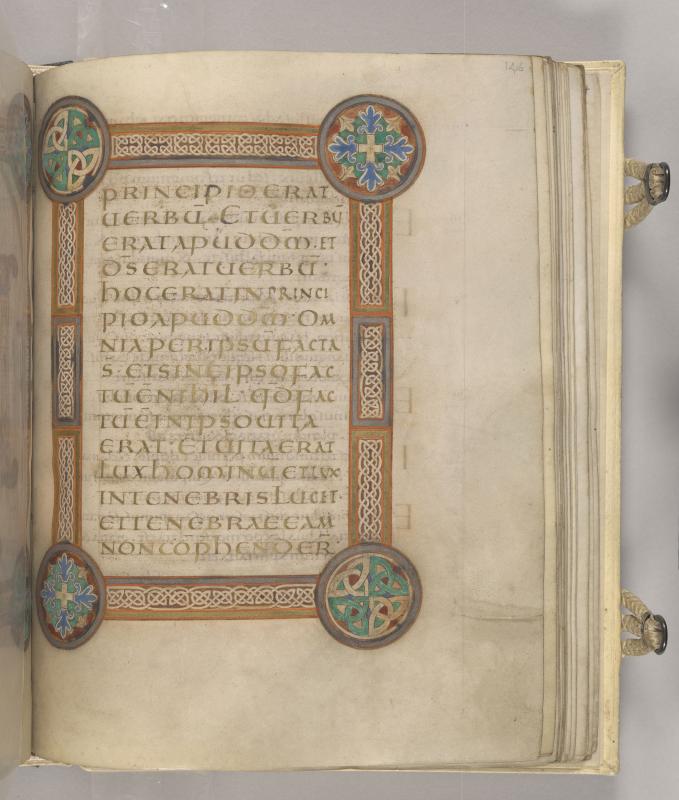 146
PRINCIPIO ERAT
UERBŪ. ET UERBŪ
ERAT APUD DM̄. ET
DS̄ ERAT UERBŪ.
HOC ERAT IN PRINCI
PIO APUD DM̄. OM
NIA PER IPSŪ FACTA
S̄. ET SINE IPSO FAC
TŪ Ē NIHIL. QD̄ FAC
TŪ Ē IN IPSO UITA
ERAT. ET UITA ERAT
LUX HOMINŪ ET LUX
IN TENEBRIS LUCET.
ET TENEBRAE EAM
NON CŌPHENDER̄